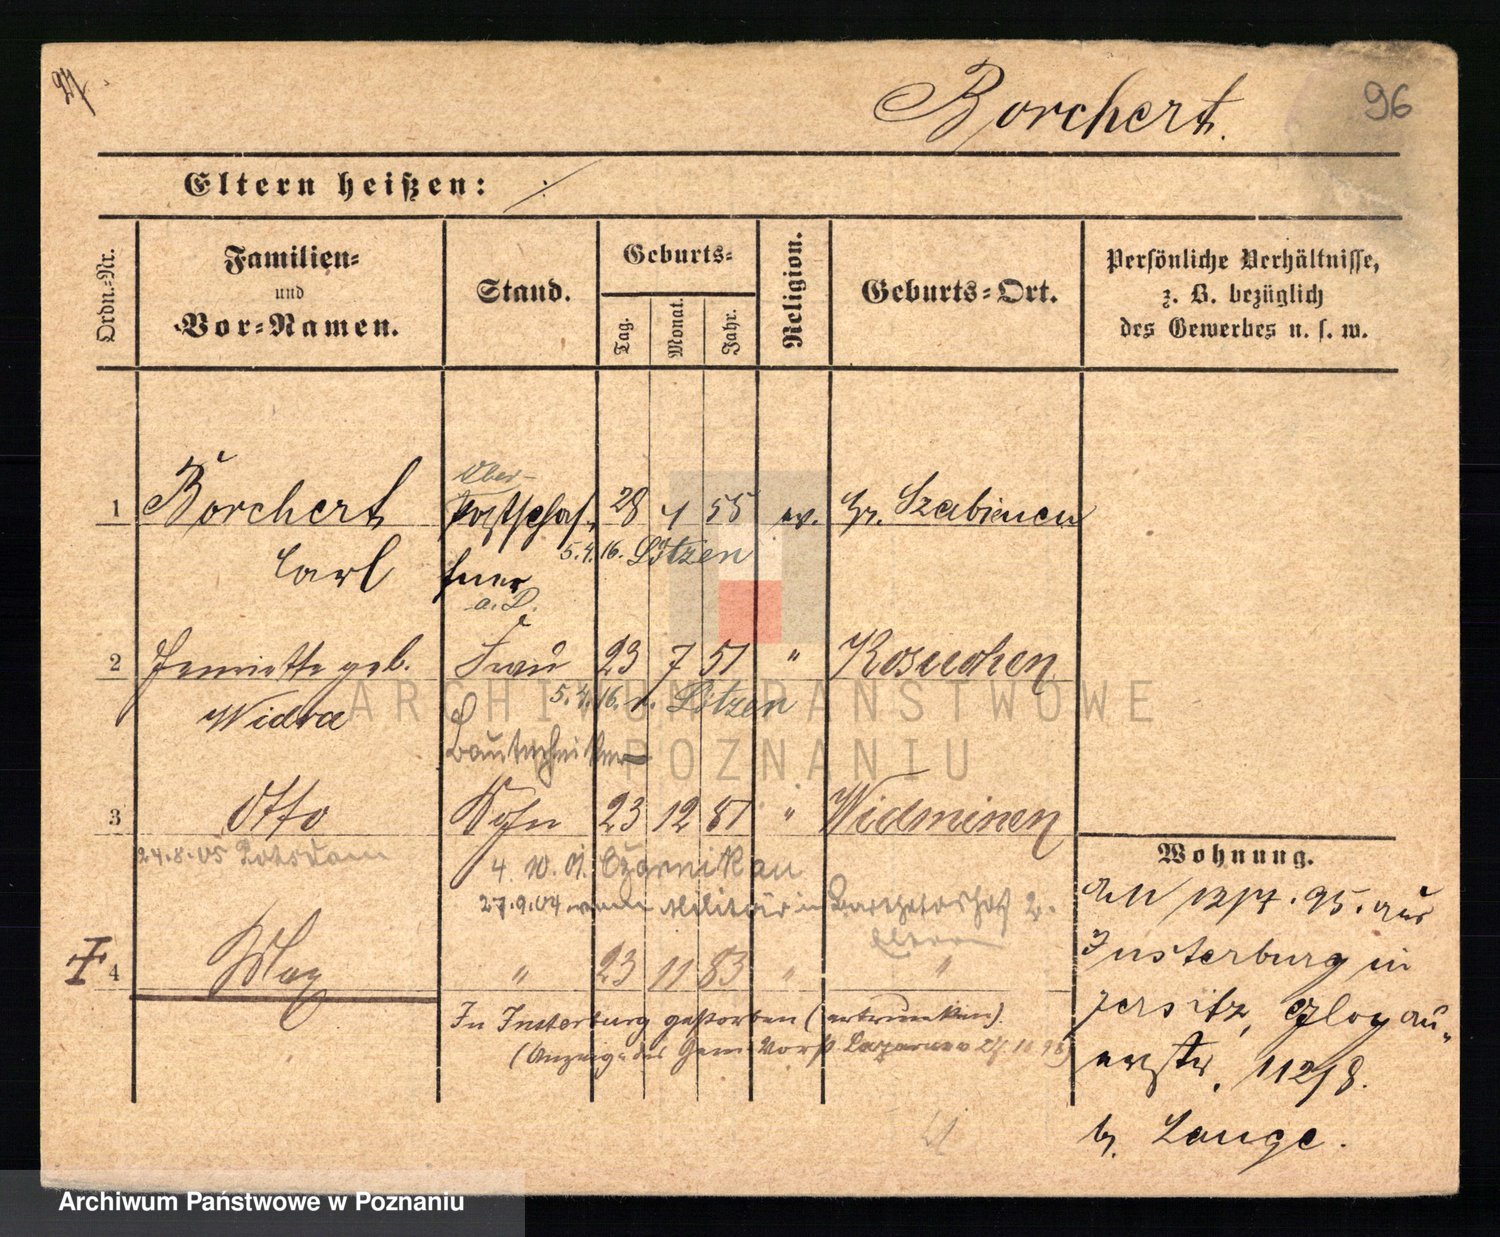 96
Borchert.
Eltern heißen:
Ordn.-Nr.
Familien-
und
Vor-Namen.
Stand.
Geburts-
Tag.
Monat.
Jahr.
Religion.
Geburts-Ort.
Persönliche Verhältnisse,
z. B. bezüglich
des Gewerbes u. s. w.
Ober-
1 Borchert Postschaf- 28 4 55 ev. Gr. Szabienen
5.4.16. Lötzen
Carl fner
a. D.
2 Henriette geb. Frau 23 7 51 " Kosuchen
5.4.16. n. Lötzen
Widra
Bautechniker
3 Otto Sohn 23 12 81 " Widminen
24.8.05 Potsdam
4. 10. 01. Czarnikau
27.9.04 vom Militär in z.
Eltern
4 Max " 23 11 83 " "
In Insterburg gestorben (ertrunken).
(Anzeige des Gem. Vorst. Lazarus
Wohnung.
Am 12/7.95. aus
Insterburg in
Jersitz, Glogau-
erstr. 112/8.
b. Lange.
ARCHIWUM PAŃSTWOWE
POZNANIU
Archiwum Państwowe w Poznaniu